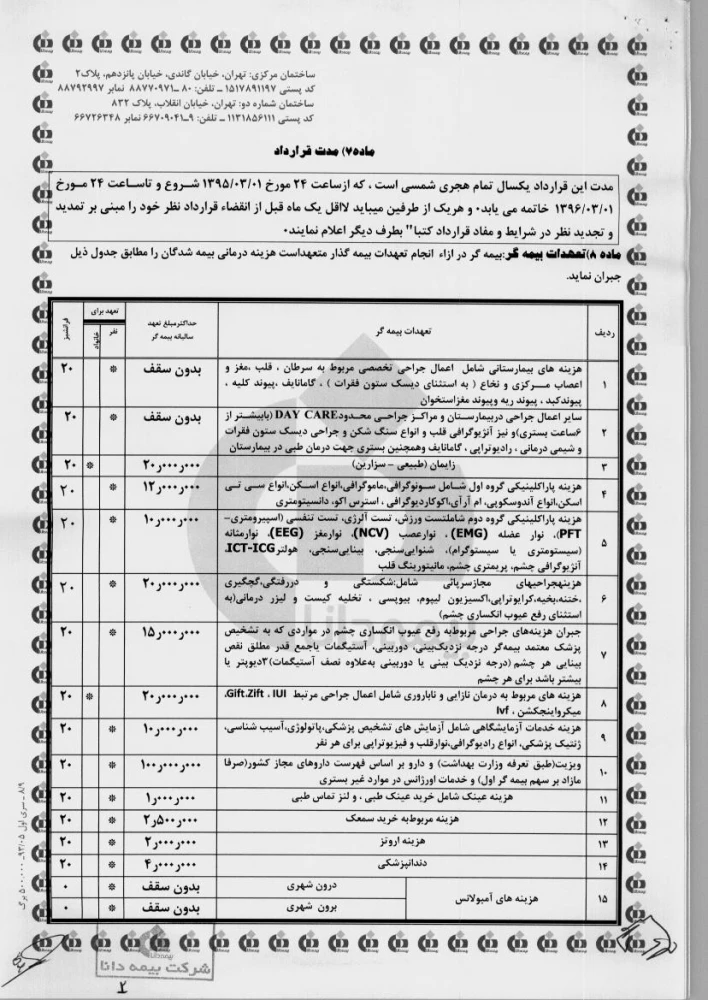 ساختمان مرکزی: تهران، خیابان گاندی، خیابان پانزدهم، پلاک۲
کد پستی ۱۵۱۷۸۹۱۱۹۷ ــ تلفن: ۸۰ ــ۸۸۷۷۰۹۷۱ نمابر ۸۸۷۹۲۹۹۷
ساختمان شماره دو: تهران، خیابان انقلاب، پلاک ۸۳۲
کد پستی ۱۱۳۱۸۵۶۱۱۱ ــ تلفن: ۹ــ۶۶۷۰۹۰۴۱ نمابر ۶۶۷۲۶۳۴۸
ماده۷) مدت قرارداد
مدت این قرارداد یکسال تمام هجری شمسی است ، که ازساعت ۲۴ مورخ ۱۳۹۵/۰۳/۰۱ شــروع و تاســاعت ۲۴ مــورخ
۱۳۹۶/۰۳/۰۱ خاتمه می یابد۰ و هریک از طرفین میباید لااقل یک ماه قبل از انقضاء قرارداد نظر خود را مبنی بر تمدید
و تجدید نظر در شرایط و مفاد قرارداد کتبا" بطرف دیگر اعلام نمایند۰
ماده ۸)تعهدات بیمه گر:بیمه گر در ازاء انجام تعهدات بیمه گذار متعهداست هزینه درمانی بیمه شدگان را مطابق جدول ذیل
جبران نماید.
ردیف تعهدات بیمه گر حداکثرمبلغ تعهد سالیانه بیمه گر تعهد برای نفر خانواده فرانشیز
۱ هزینه های بیمارستانی شامل اعمال جراحی تخصصی مربوط به سرطان ، قلب ،مغز و بدون سقف ※ ۲۰
اعصاب مــرکزی و نخاع ( به استثنای دیسک ستون فقرات ) ، گامانایف ،پیوند کلیه ،
پیوندکبد ، پیوند ریه وپیوند مغزاستخوان
۲ سایر اعمال جراحی دربیمارســتان و مراکـز جراحــی محــدودDAY CARE (بابیشــتر از بدون سقف ※ ۲۰
۶ساعت بستری)و نیز آنژیوگرافی قلب و انواع سنگ شکن و جراحی دیسک ستون فقرات
و شیمی درمانی ، رادیوتراپی ، گامانایف وهمچنین بستری جهت درمان طبی در بیمارستان
۳ زایمان (طبیعی – سزارین) ۲۰ر۰۰۰ر۰۰۰ ※ ۲۰
۴ هزینه پاراکلینیکی گروه اول شــامل ســونوگرافی،ماموگرافی،انواع اسـکن،انواع سـی تـی ۱۲ر۰۰۰ر۰۰۰ ※ ۲۰
اسکن،انواع آندوسکوپی، ام آرآی،اکوکاردیوگرافی ، استرس اکو، دانسیتومتری
۵ هزینه پاراکلینیکی گروه دوم شاملتست ورزش، تست آلرژی، تست تنفسی (اسپیرومتری– ۱۰ر۰۰۰ر۰۰۰ ※ ۲۰
PFT)، نوار عضله (EMG) ، نوارعصب (NCV)، نوارمغز (EEG)، نوارمثانه
(سیستومتری یا سیستوگرام)، شنوایی‌سنجی، بینایی‌سنجی، هولترICT-ICG،
آنژیوگرافی چشم، پریمتری چشم، مانیتورینگ قلب
۶ هزینهجراحیهای مجازسرپائی شامل:شکستگی و دررفتگی،گچگیری ۲۰ر۰۰۰ر۰۰۰ ※ ۲۰
،ختنه،بخیه،کرایوتراپی،اکسیزیون لیپوم، بیوپسی ، تخلیه کیست و لیزر درمانی(به
استثنای رفع عیوب انکساری چشم)
۷ جبران هزینه‌های جراحی مربوط‌به رفع عیوب انکساری چشم در مواردی که به تشخیص ۱۵ر۰۰۰ر۰۰۰ ※ ۲۰
پزشک معتمد بیمه‌گر درجه نزدیک‌بینی، دوربینی، آستیگمات یاجمع قدر مطلق نقص
بینایی هر چشم (درجه نزدیک بینی یا دوربینی به‌علاوه نصف آستیگمات)۳دیوپتر یا
بیشتر باشد برای هر چشم
۸ هزینه های مربوط به درمان نازایی و ناباروری شامل اعمال جراحی مرتبط Gift.Zift ، IUI، ۲۰ر۰۰۰ر۰۰۰ ※ ۲۰
میکرواینجکشن ، Ivf
۹ هزینه خدمات آزمایشگاهی شامل آزمایش های تشخیص پزشکی،پاتولوژی،آسیب شناسی، ۱۰ر۰۰۰ر۰۰۰ ※ ۲۰
ژنتیک پزشکی، انواع رادیوگرافی،نوارقلب و فیزیوتراپی برای هر نفر
۱۰ ویزیت(طبق تعرفه وزارت بهداشت) و دارو بر اساس فهرست داروهای مجاز کشور(صرفا ۱۰۰ر۰۰۰ر۰۰۰ ※ ۲۰
مازاد بر سهم بیمه گر اول) و خدمات اورژانس در موارد غیر بستری
۱۱ هزینه عینک شامل خرید عینک طبی ، و لنز تماس طبی ۱ر۰۰۰ر۰۰۰ ※ ۲۰
۱۲ هزینه مربوط‌به خرید سمعک ۲ر۵۰۰ر۰۰۰ ※ ۲۰
۱۳ هزینه اروتز ۲ر۰۰۰ر۰۰۰ ※ ۲۰
۱۴ دندانپزشکی ۴ر۰۰۰ر۰۰۰ ※ ۲۰
۱۵ هزینه های آمبولانس درون شهری بدون سقف ※ ۰
برون شهری بدون سقف ※ ۰
۸/۹ ــ سری اول ۹۳/۰۵ــ ۵۰۰،۰۰۰ برگ
بیمه دانا
شرکت بیمه دانا
۲